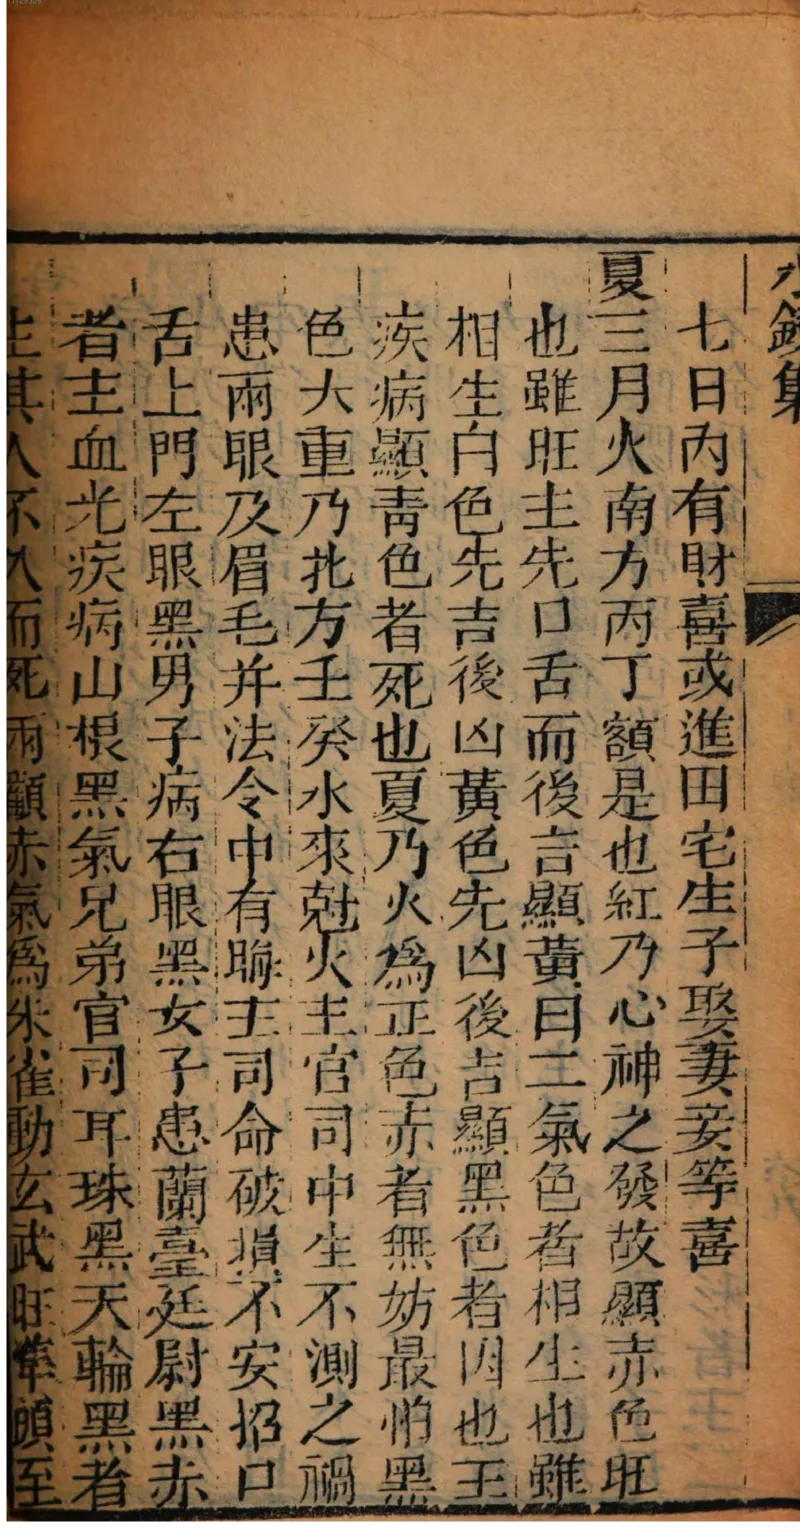 水鏡集
七日內有財喜或進田宅生子娶妻妾等喜
夏三月火南方丙丁額是也紅乃心神之發故顯赤色旺
也雖旺主先口舌而後言顯黃曰二氣色者相生也雖
相生白色先吉後凶黃色先凶後吉顯黑色者囚也主
疾病顯青色者死也夏乃火為正色赤者無妨最怕黑
色大重乃北方壬癸水來尅火主官司中生不測之禍
患兩眼及眉毛并法令中有晦主司命破損不安招口
舌上門左眼黑男子病右眼黑女子患蘭臺廷尉黑赤
者主血光疾病山根黑氣兄弟官司耳珠黑天輪黑者
主其人不久而死兩顴赤氣為朱雀動玄武旺準頭至